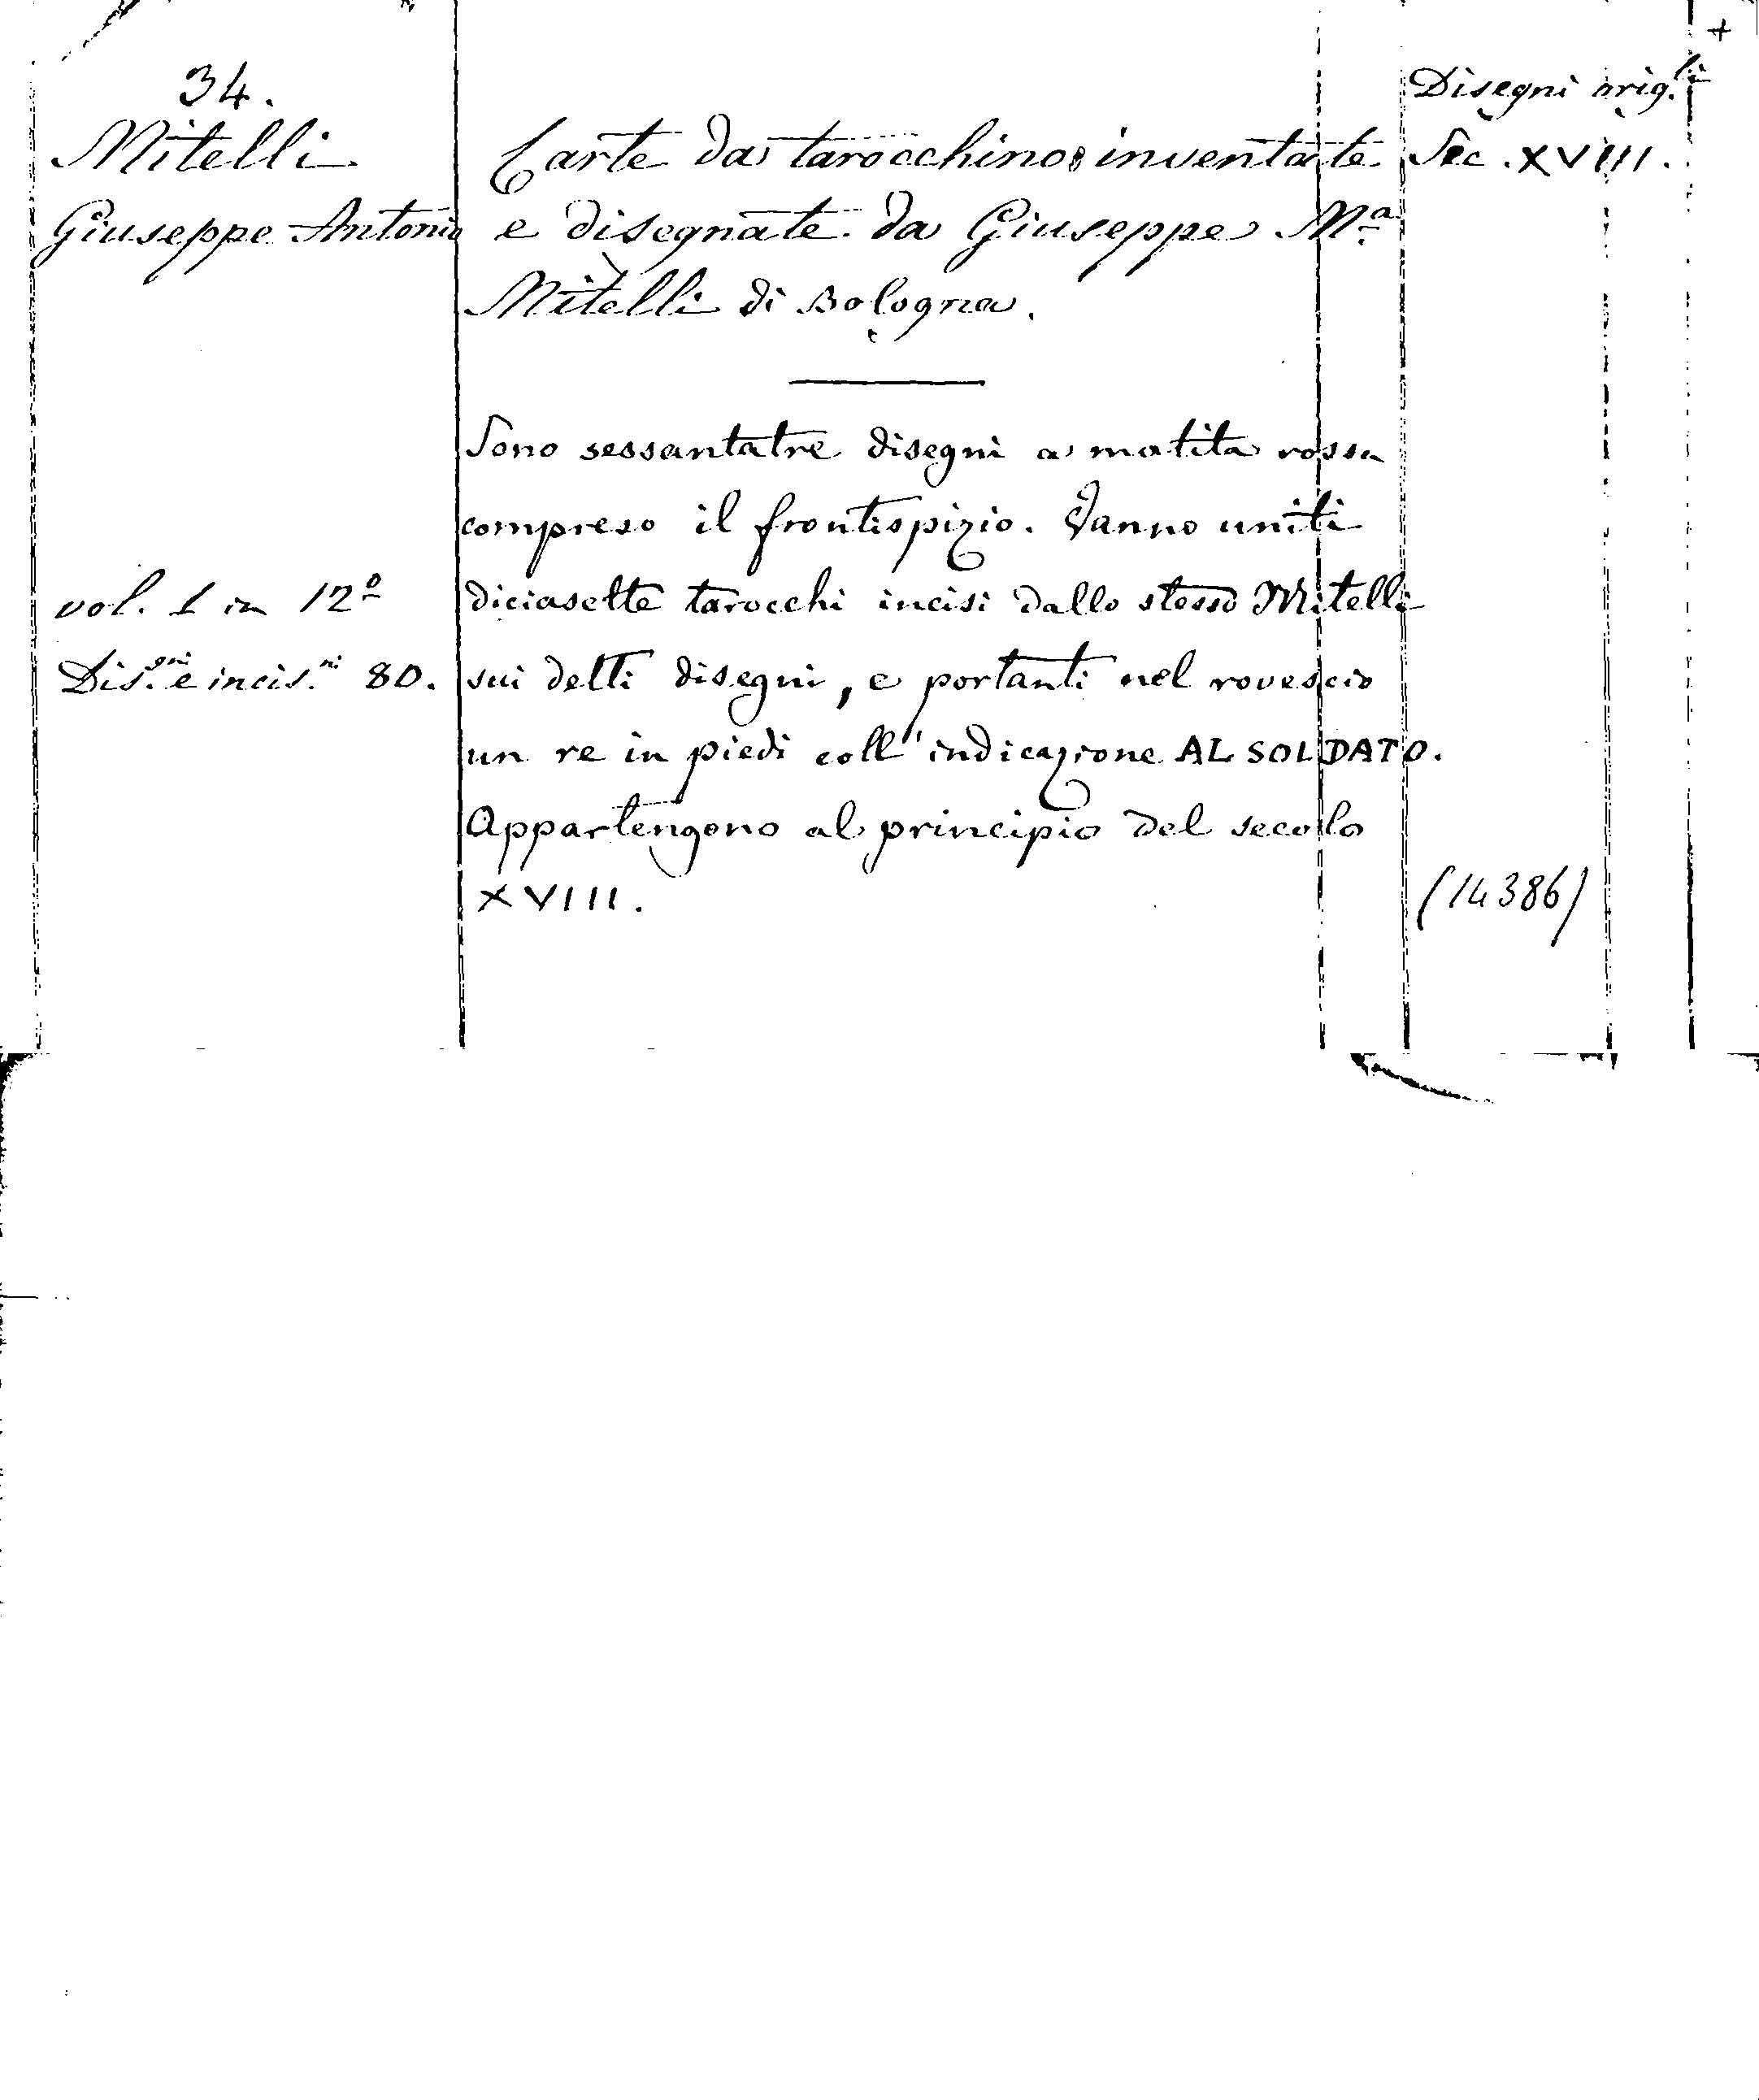 +
34.
Mitelli
Giuseppe Antonio
vol. 1 in 12º
Dis.gni e incis.ni 80.
Carte da tarocchino inventate
e disegnate da Giuseppe M.a
Mitelli di Bologna.
Sono sessantatre disegni a matita rossa
compreso il frontispizio. Vanno uniti
diciasette tarocchi incisi dallo stesso Mitelli
sui detti disegni, e portanti nel rovescio
un re in piedi coll'indicazione AL SOLDATO.
Appartengono al principio del secolo
XVIII.
Disegni orig.li
Sec. XVIII.
(14386)